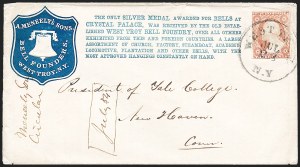 A. MENEELY'S SONS,
BELL FOUNDERS,
WEST TROY, N.Y.
THE ONLY SILVER MEDAL AWARDED FOR BELLS AT
CRYSTAL PALACE, WAS RECEIVED BY THE OLD ESTAB-
LISHED WEST TROY BELL FOUNDRY, OVER ALL OTHERS
EXHIBITED FROM THIS AND FOREIGN COUNTRIES. A LARGE
ASSORTMENT OF CHURCH, FACTORY, STEAMBOAT, ACADEMY,
LOCOMOTIVE, PLANTATION AND OTHER BELLS, WITH THE
MOST APPROVED HANGINGS CONSTANTLY ON HAND.
WEST
JUL
N.Y.
Circular
July
President of Yale College
New Haven
Conn.